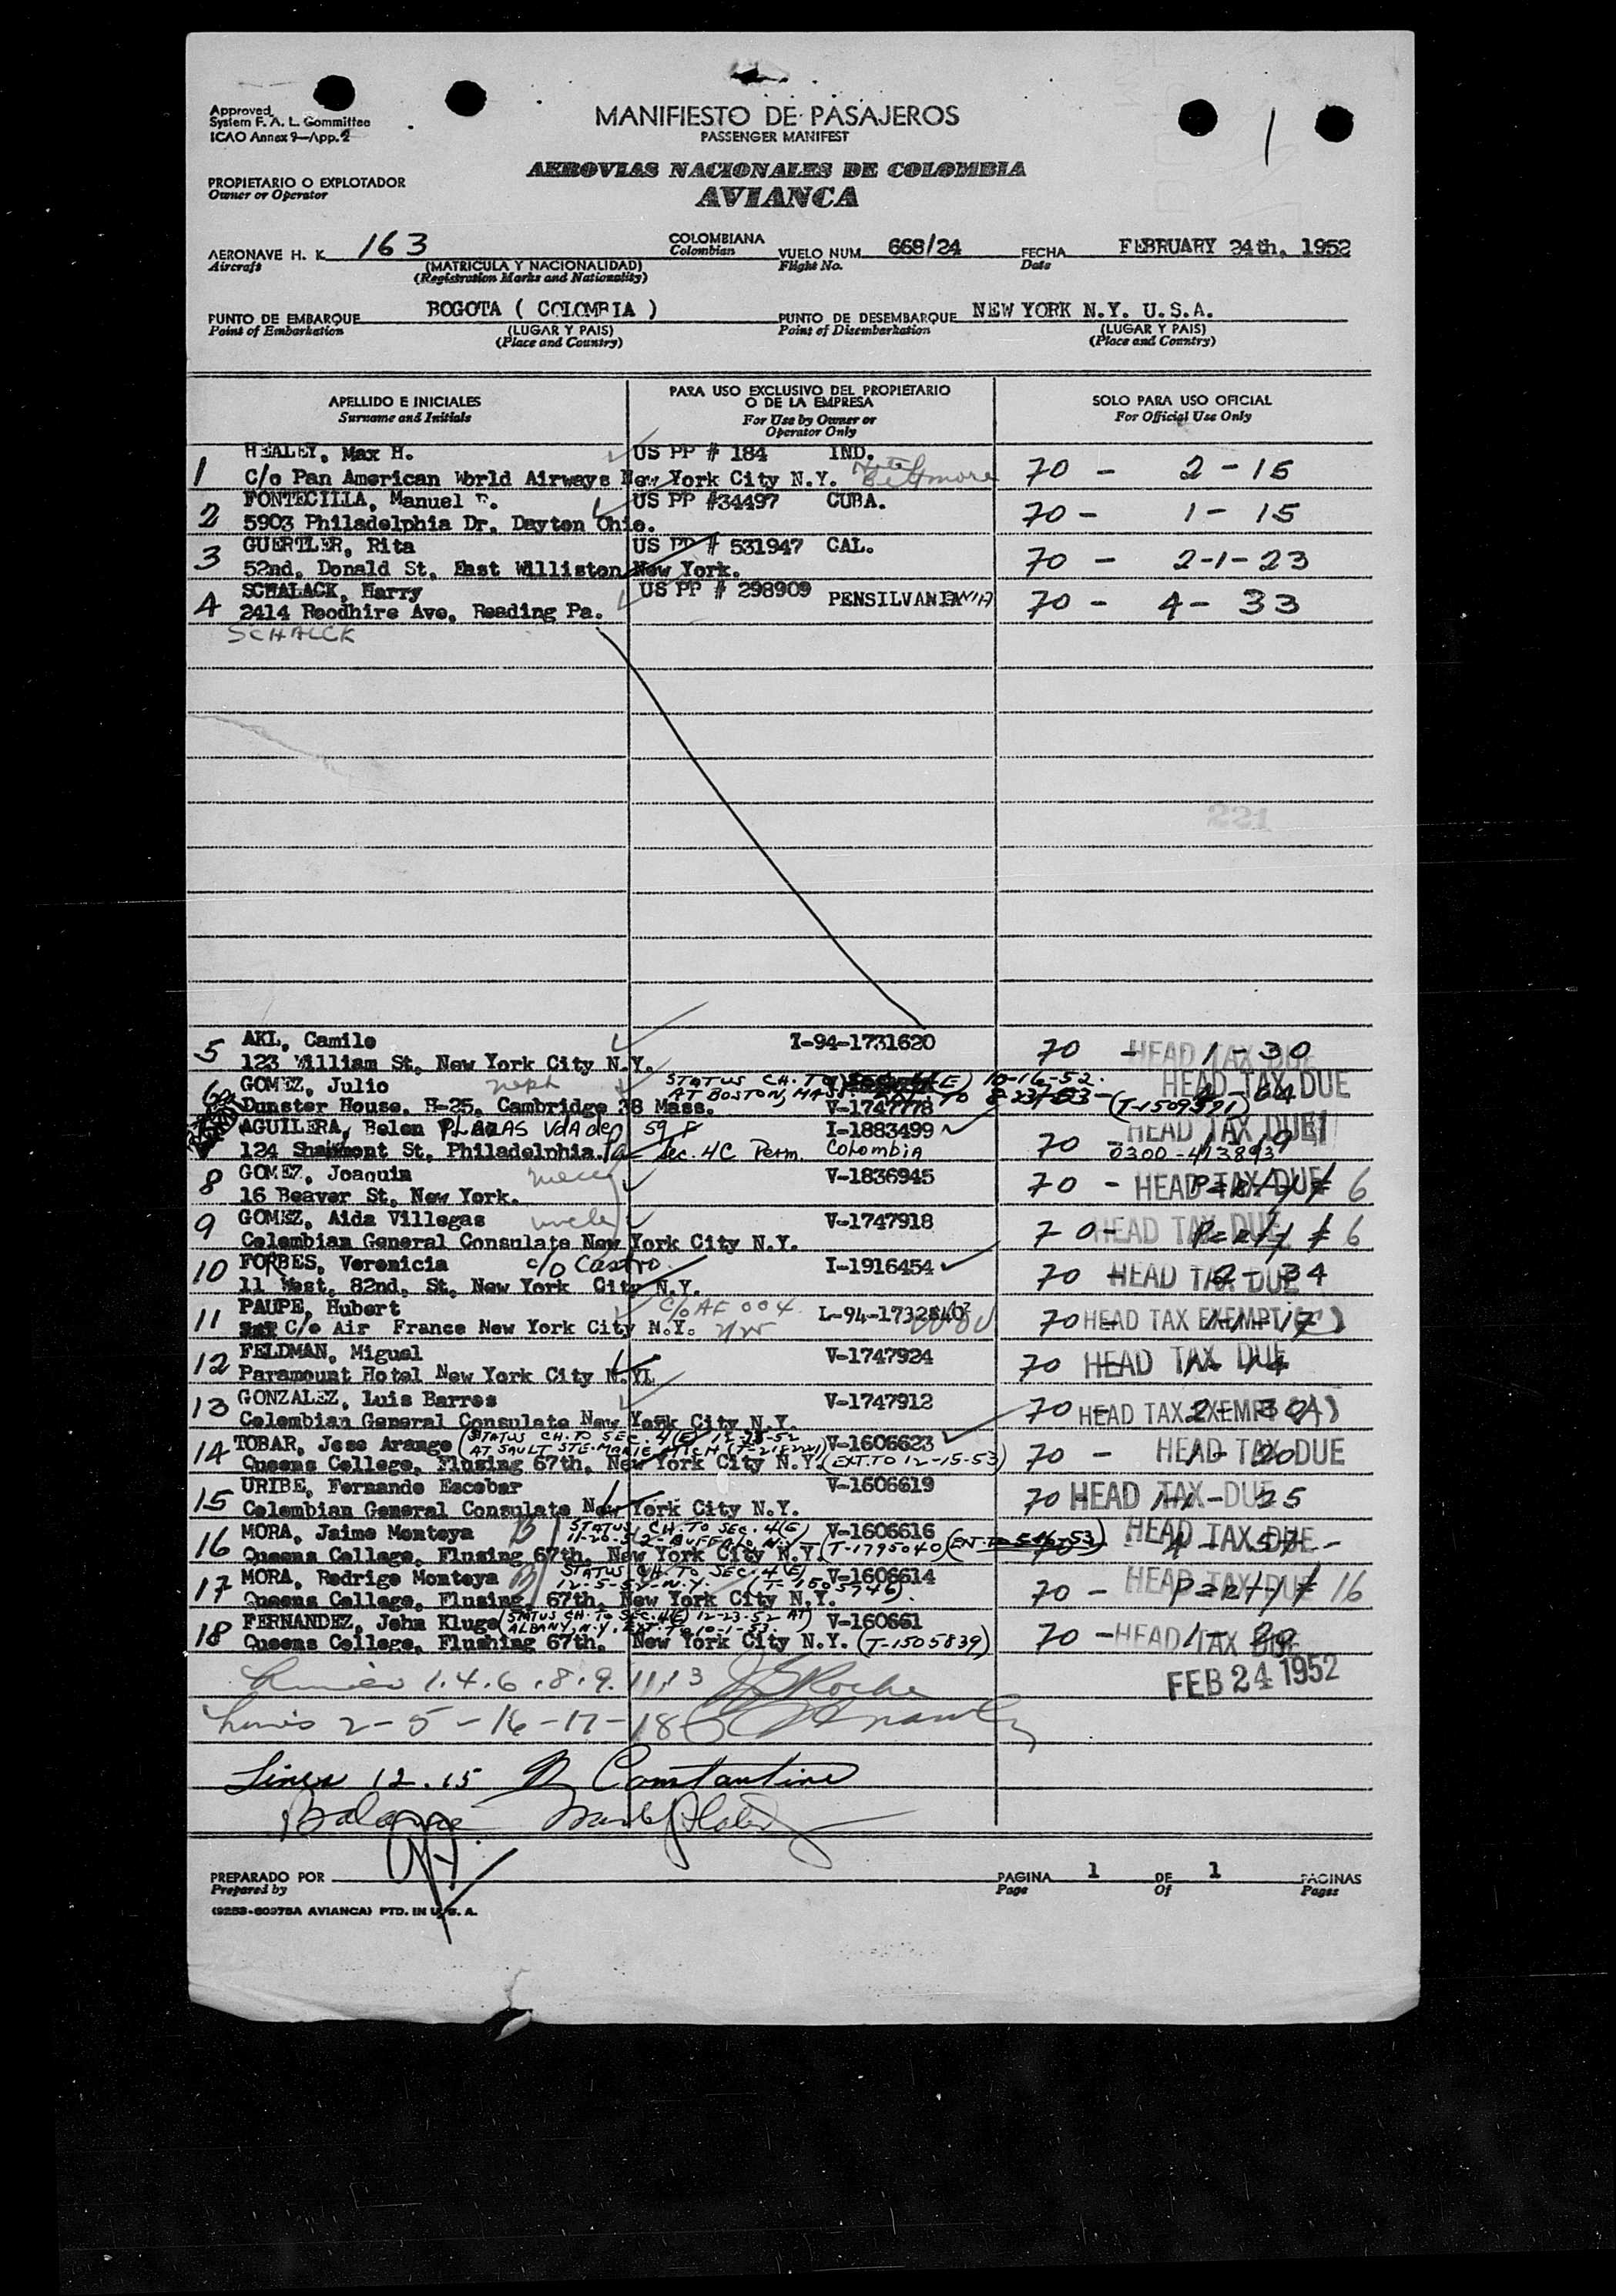 Approved
System F. A. L. Committee
ICAO Annex 9—App. 2
MANIFIESTO DE PASAJEROS
PASSENGER MANIFEST
1
AEROVIAS NACIONALES DE COLOMBIA
AVIANCA
PROPIETARIO O EXPLOTADOR
Owner or Operator
AERONAVE H. K. 163 COLOMBIANA VUELO NUM 668/24 FECHA FEBRUARY 24th, 1952
Aircraft Colombian Flight No. Date
(MATRICULA Y NACIONALIDAD)
(Registration Marks and Nationality)
PUNTO DE EMBARQUE BOGOTA ( COLOMBIA ) PUNTO DE DESEMBARQUE NEW YORK N.Y. U.S.A.
Point of Embarkation (LUGAR Y PAIS) Point of Disembarkation (LUGAR Y PAIS)
(Place and Country) (Place and Country)
APELLIDO E INICIALES PARA USO EXCLUSIVO DEL PROPIETARIO O DE LA EMPRESA SOLO PARA USO OFICIAL
Surname and Initials For Use by Owner or Operator Only For Official Use Only
1 HEALEY, Max H. US PP # 184 IND.
C/o Pan American World Airways New York City N.Y. Hotel Biltmore 70 - 2-15
2 FONTECILLA, Manuel US PP #34497 CUBA.
5903 Philadelphia Dr, Dayton Ohio. 70 - 1-15
3 GUERTLER, Rita US PP # 531947 CAL.
52nd, Donald St, East Williston New York. 70 - 2-1-23
4 SCHALACK, Harry US PP # 298909 PENSILVANIA
2414 Roodhire Ave, Reading Pa. 70 - 4-33
SCHALCK
221
5 AKL, Camilo I-94-1731620
123 William St, New York City N.Y. 70 - 1-30 HEAD TAX DUE
6 GOMEZ, Julio neph STATUS CH. TO 10-16-52. HEAD TAX DUE
AT BOSTON, MASS. TO 8-23-53 - (T-1509521)
Dunster House, H-25, Cambridge 38 Mass. V-1747778
AGUILERA, Belen Vda de 59 F I-1883499 HEAD TAX DUE
124 St, Philadelphia. Pa Sec. 4C Perm. Colombia 70 - 19 0300-413893
8 GOMEZ, Joaquin V-1836945
16 Beaver St, New York. 70 - HEAD TAX DUE # 6
9 GOMEZ, Aida Villegas uncle V-1747918
Colombian General Consulate New York City N.Y. 70 - HEAD TAX DUE # 6
10 FORBES, Veronicia c/o Castro. I-1916454
11 West, 82nd, St, New York City N.Y. 70 - 2-34 HEAD TAX DUE
11 PAUPE, Hubert C/o AF 004. L-94-1732840
C/o Air France New York City N.Y. 70 HEAD TAX EXEMPT 1-1-17
12 FELDMAN, Miguel V-1747924
Paramount Hotel New York City N.Y. 70 HEAD TAX DUE
13 GONZALEZ, Luis Barros V-1747912
Colombian General Consulate New York City N.Y. 70 - HEAD TAX EXEMPT 2-30
14 TOBAR, Jose Arango (STATUS CH. TO SEC. 4(E) V-1606623
AT SAULT STE. MARIE MICH
Queens College, Flusing 67th, New York City N.Y. (EXT. TO 12-15-53) 70 - 1-20 HEAD TAX DUE
15 URIBE, Fernando Escobar V-1606619
Colombian General Consulate New York City N.Y. 70 - 1-1-25 HEAD TAX DUE
16 MORA, Jaime Montoya STATUS CH. TO SEC. 4(E) V-1606616
11-20-52-BUFFALO N.Y. (T-1795040)
Queens College, Flusing 67th, New York City N.Y. HEAD TAX DUE
17 MORA, Rodrigo Montoya STATUS CH. TO SEC. 4(E) V-1606614
12-5-52-N.Y. (T-1505746).
Queens College, Flusing, 67th, New York City N.Y. 70 - HEAD TAX DUE # 16
18 FERNANDEZ, John Kluge (STATUS CH. TO SEC. 4(E) 12-23-52 AT) V-160661
ALBANY, N.Y. EXT. TO 10-1-53.
Queens College, Flushing 67th, New York City N.Y. (T-1505839) 70 - 1-20 HEAD TAX DUE
FEB 24 1952
1.4.6.8.9.11.13 Roche
2-5-16-17-18
Lines 12.15 Constantine
Balance
PREPARADO POR PAGINA 1 DE 1 PAGINAS
Prepared by Page Of Pages
(9253-60978A AVIANCA) PTD. IN U. S. A.